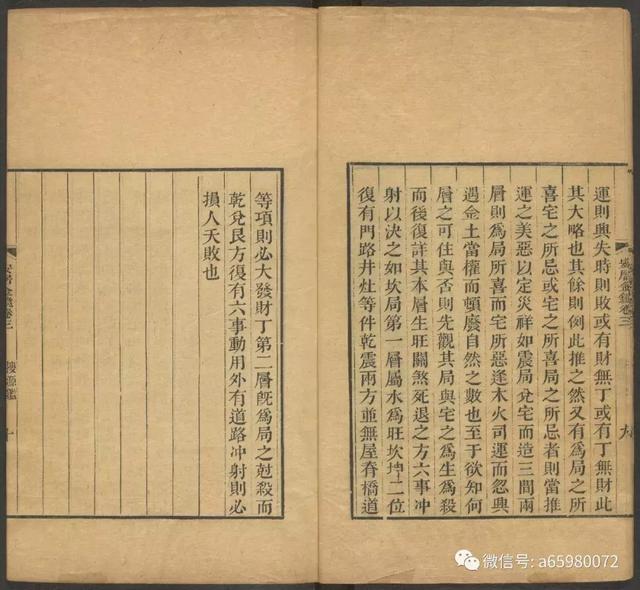 運則興失時則敗或有財無丁或有丁無財此
其大略也其餘則例此推之然又有爲局之所
喜宅之所忌或宅之所喜局之所忌者則當推
運之美惡以定災祥如震局兌宅而造三間兩
層則爲局所喜而宅所惡逢木火司運而忽興
遇金土當權而頓廢自然之數也至于欲知何
層之可住與否則先觀其局與宅之爲生爲殺
而後復詳其本層生旺關煞死退之方六事冲
射以決之如坎局第一層屬水爲旺坎坤二位
復有門路井灶等件乾震兩方並無屋脊橋道
等項則必大發財丁第二層旣爲局之尅殺而
乾兌艮方復有六事動用外有道路冲射則必
損人夭敗也
卷三
十
微信号: a65980072